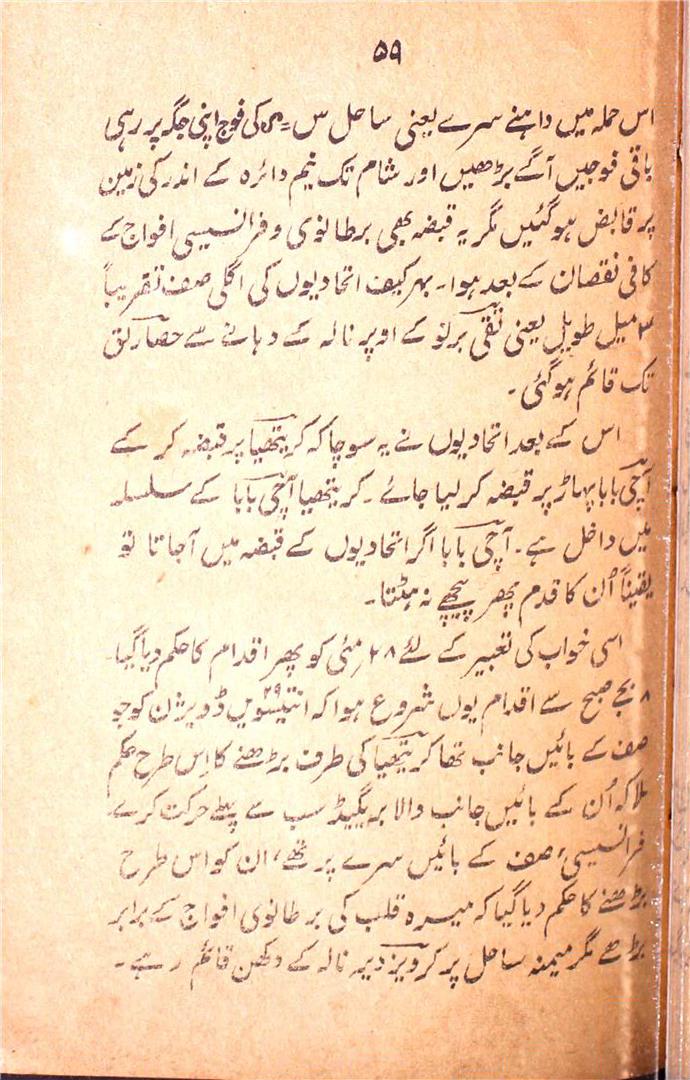 ۵۹
اس حملہ میں داہنے سرے یعنی ساحل س = کی فوج اپنی جگہ پر رہی
باقی فوجیں آگے بڑھیں اور شام تک نیم دائرہ کے اندر کی زمین
پر قابض ہو گئیں مگر یہ قبضہ بھی برطانوی و فرانسیسی افواج کے
کافی نقصان کے بعد ہوا۔ بہرکیف اتحادیوں کی اگلی صف تقریباً
۳ میل طویل یعنی تقی برنو کے اوپر نالہ کے دہانے سے حصارلق
تک قائم ہو گئی۔
اس کے بعد اتحادیوں نے یہ سوچا کہ کریتھیا پر قبضہ کر کے
آچی بابا پہاڑ پر قبضہ کر لیا جائے۔ کریتھیا آچی بابا کے سلسلہ
میں داخل ہے۔ آچی بابا اگر اتحادیوں کے قبضہ میں آجاتا تو
یقیناً اُن کا قدم پھر پیچھے نہ ہٹتا۔
اسی خواب کی تعبیر کے لئے ۲۸ مئی کو پھر اقدام کا حکم دیا گیا۔
۸ بجے صبح سے اقدام یوں شروع ہوا کہ انتیسویں ۲۹ ڈویژن کو جو
صف کے بائیں جانب تھا کریتھیا کی طرف بڑھنے کا اِس طرح حکم
ملا کہ اُن کے بائیں جانب والا بریگیڈ سب سے پہلے حرکت کرے
فرانسیسی، صف کے بائیں سرے پر تھے، ان کو اس طرح
بڑھنے کا حکم دیا گیا کہ میسرہ قلب کی برطانوی افواج کے برابر
بڑھے مگر میمنہ ساحل پر کرویز دیرہ نالہ کے دکھن قائم رہے۔